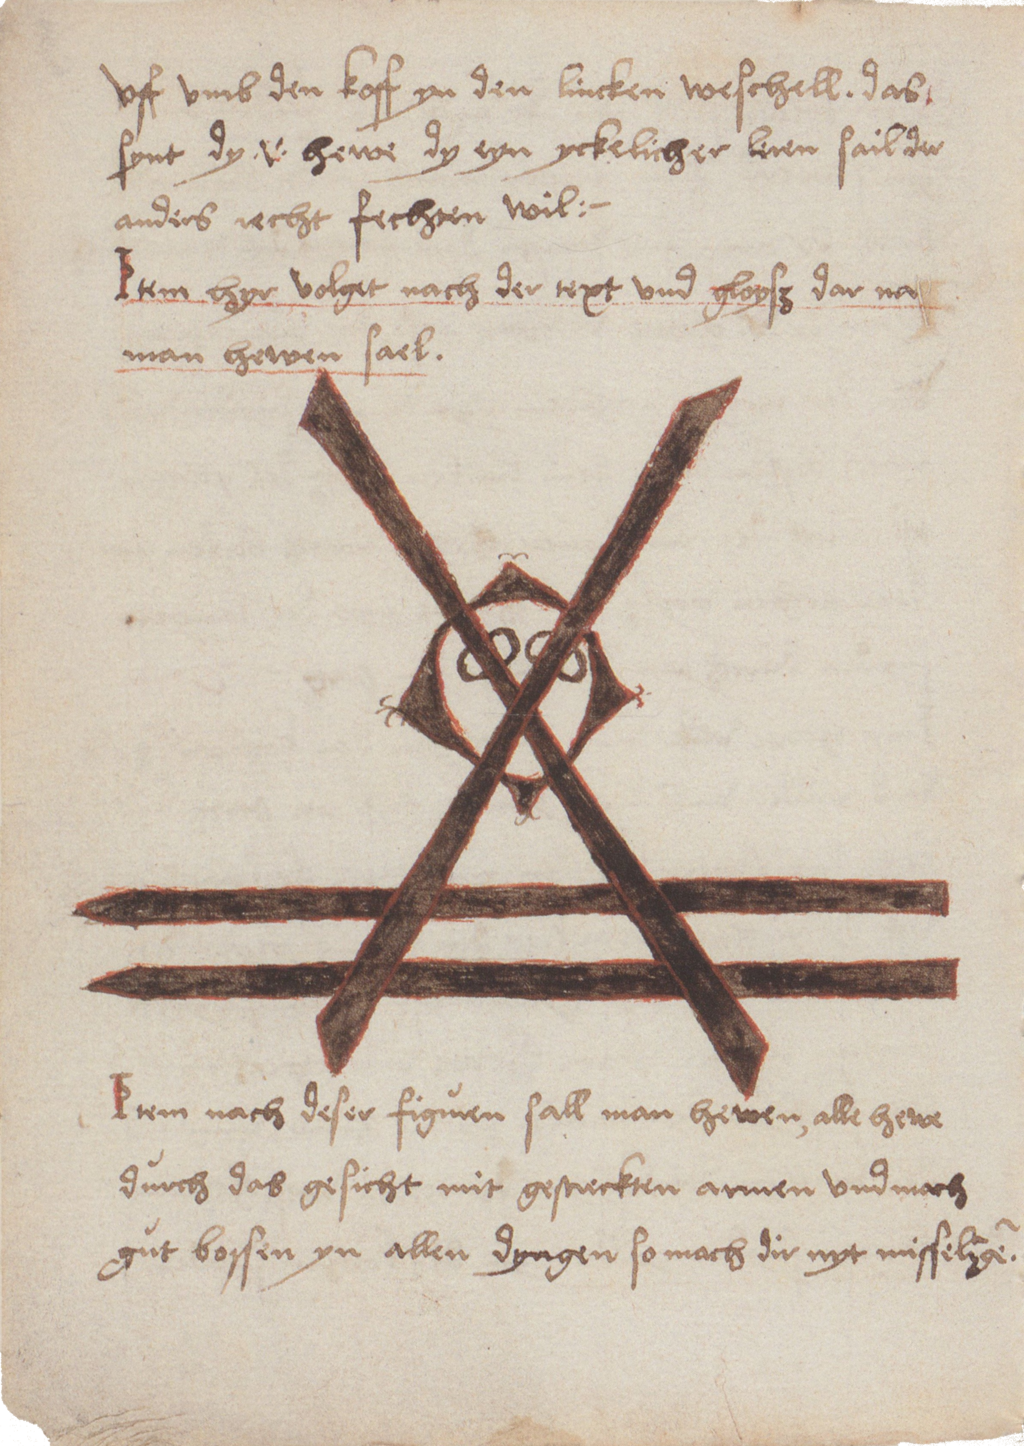 vff vmb den koff yn den lincken weschell. das
synt dy .v. hewe dy eyn yckelicher leren sail der
anders recht fechten wil :-
Item hyr volget nach der text vnd glopsz dar na
man hewen sael.
Item nach deser figuren sall man hewen, alle hewe
durch das gesicht mit gestreckten armen vnd mach
gut bossen yn allen dyngen so mach dir nyt misselīgē.